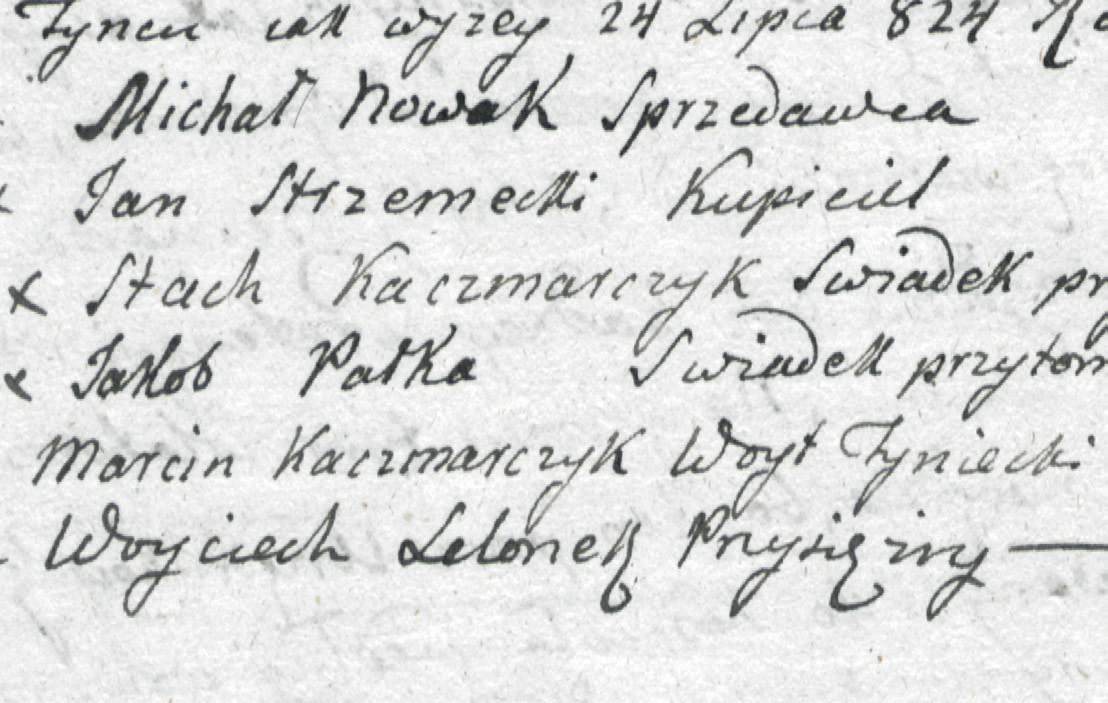 Tyncu iak wyzey 24 Lipca 824 Ro
Michał Nowak Sprzedawca
x Jan Strzemecki Kupiciel
x Stach Kaczmarczyk Swiadek prz
x Jakob Pałka Swiadek przytom
Marcin Kaczmarczyk Woyt Tyniecki
Woyciech Lelonek Przysięzny —